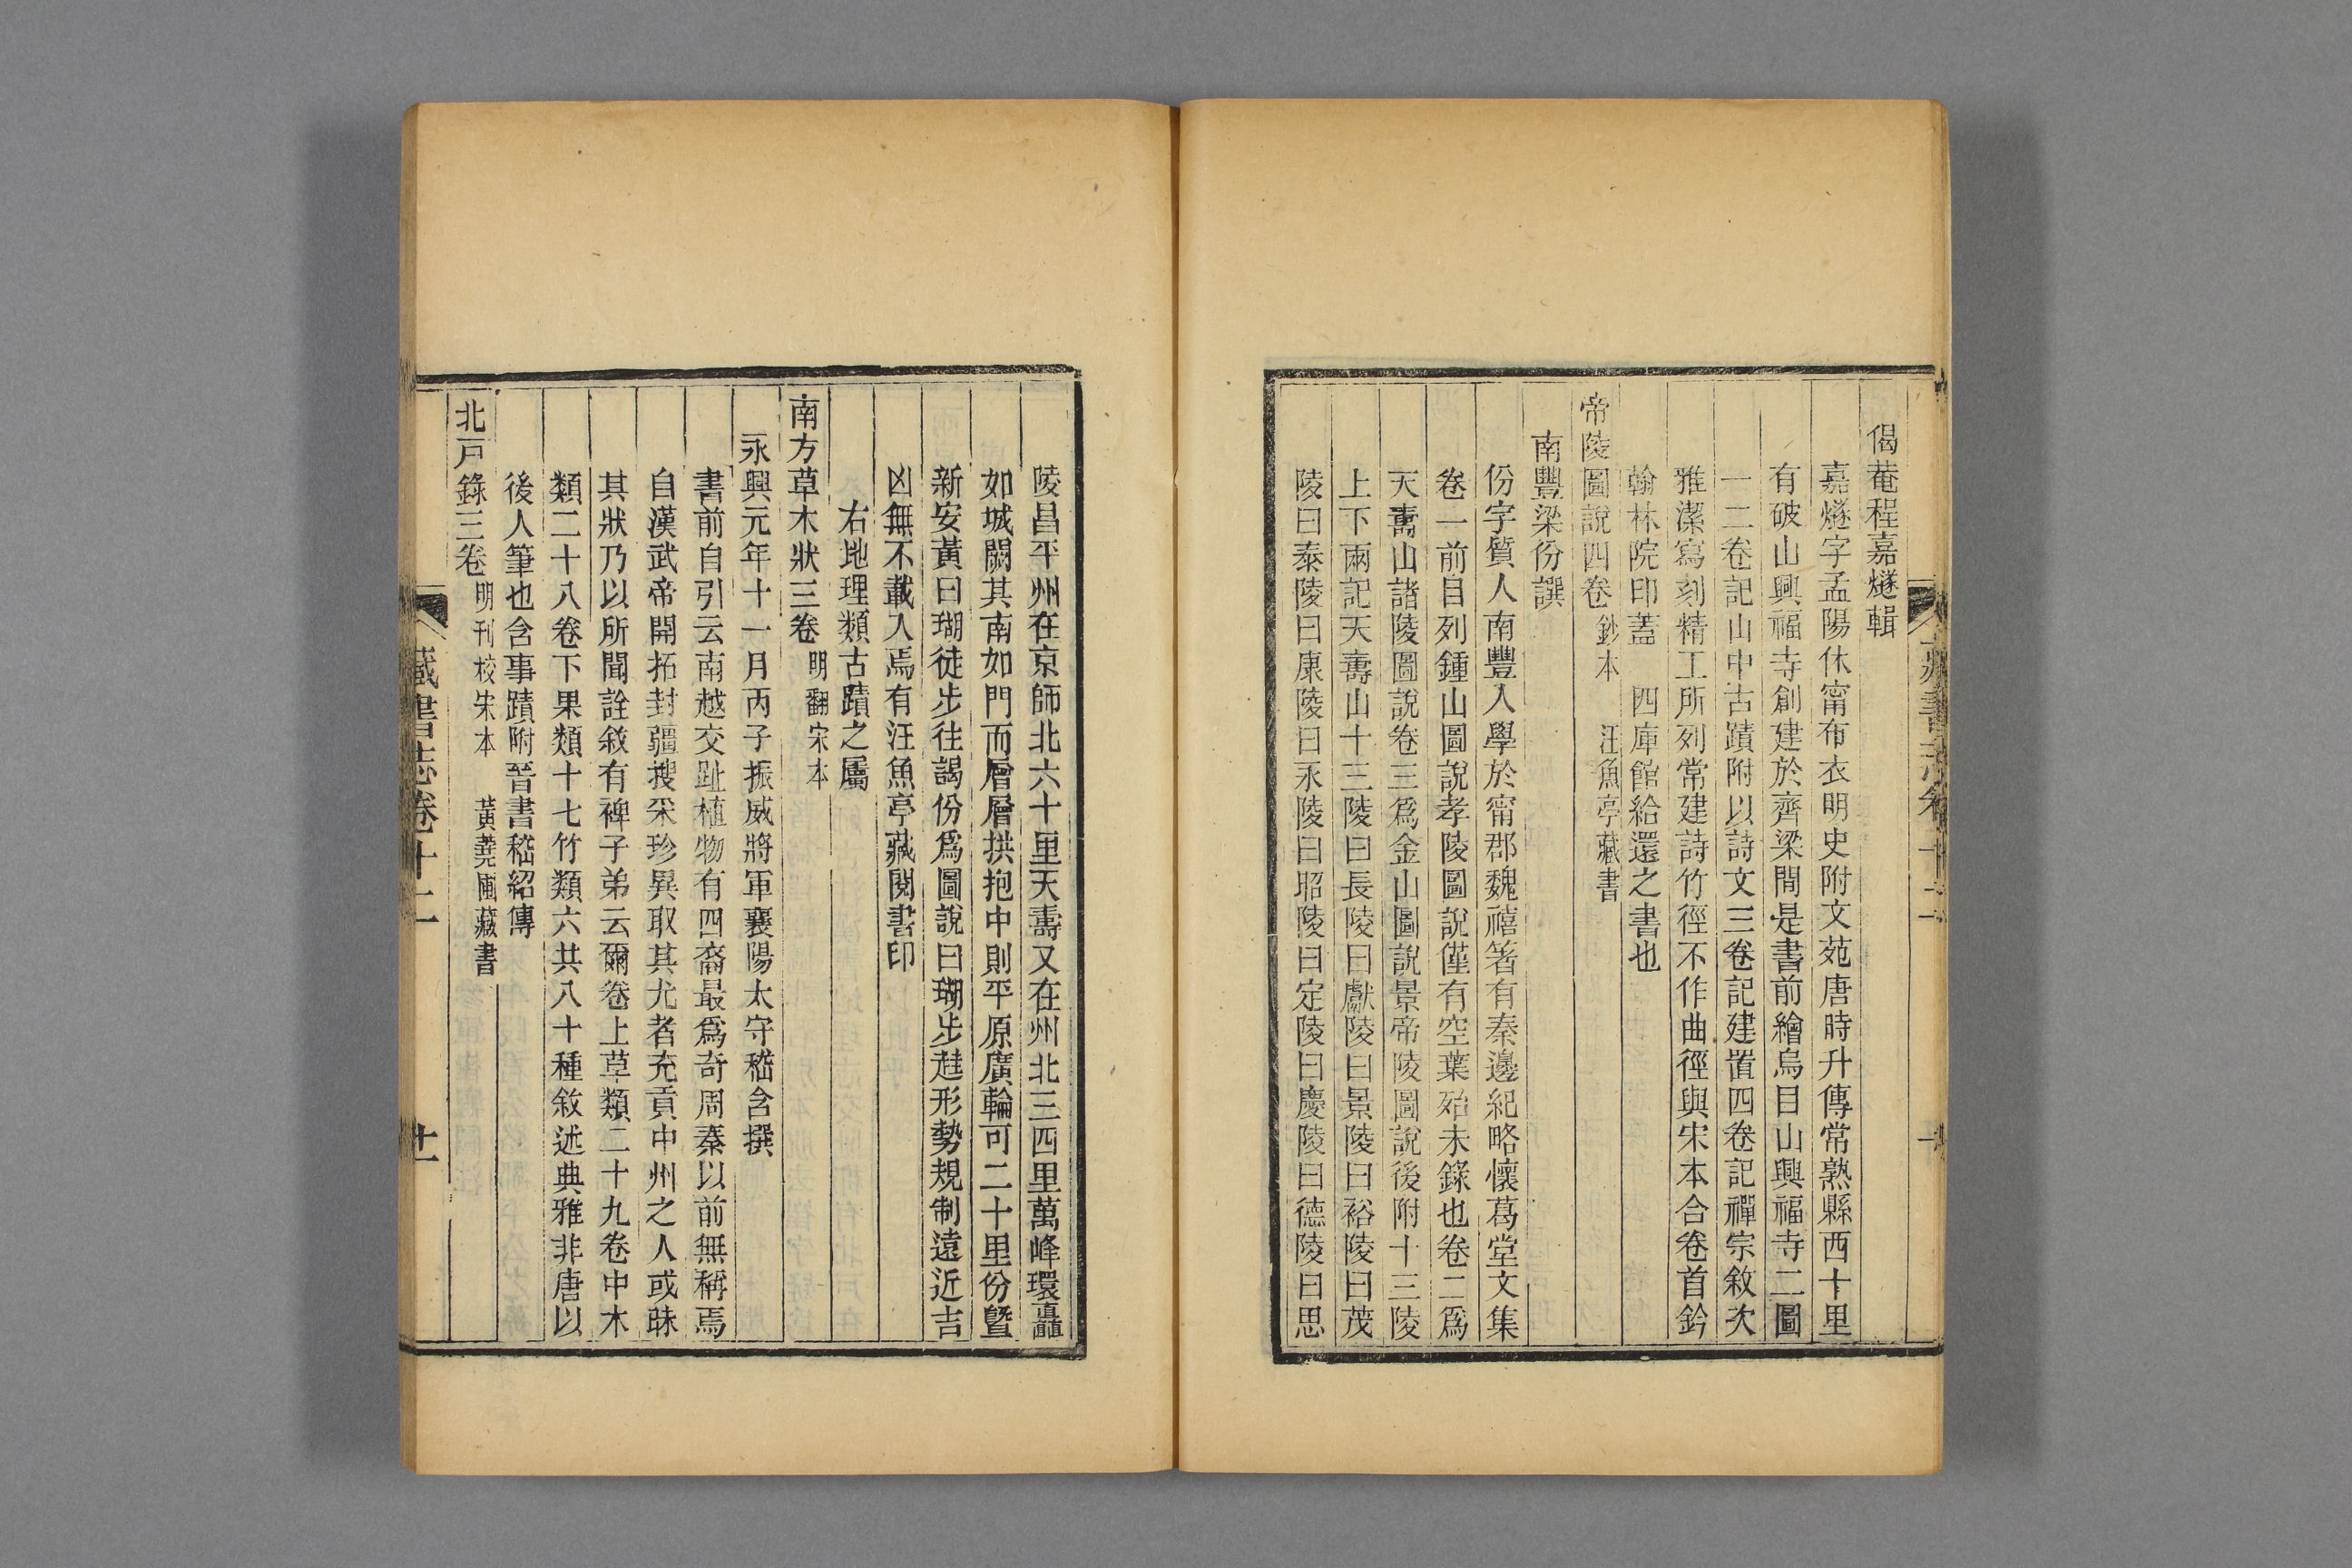 偈菴程嘉燧輯
嘉燧字孟陽休甯布衣明史附文苑唐時升傳常熟縣西十里
有破山興福寺創建於齊梁閒是書前繪烏目山興福寺二圖
一二卷記山中古蹟附以詩文三卷記建置四卷記禪宗敘次
雅潔寫刻精工所列常建詩竹徑不作曲徑與宋本合卷首鈐
翰林院印蓋 四庫館給還之書也
帝陵圖說四卷 鈔本 汪魚亭藏書
南豐梁份譔
份字質人南豐人學於甯郡魏禧箸有秦邊紀略懷葛堂文集
卷一前目列鍾山圖說孝陵圖說僅有空葉殆未錄也卷二爲
天壽山諸陵圖說卷三爲金山圖說景帝陵圖說後附十三陵
上下兩記天壽山十三陵曰長陵曰獻陵曰景陵曰裕陵曰茂
陵曰泰陵曰康陵曰永陵曰昭陵曰定陵曰慶陵曰德陵曰思
陵昌平州在京師北六十里天壽又在州北三四里萬峰環矗
如城闕其南如門而層層拱抱中則平原廣輪可二十里份暨
新安黃曰瑚徒步往謁份爲圖說曰瑚步趕形勢規制遠近吉
凶無不載入焉有汪魚亭藏閱書印
右地理類古蹟之屬
南方草木狀三卷 明翻宋本
永興元年十一月丙子振威將軍襄陽太守嵇含撰
書前自引云南越交趾植物有四裔最爲奇周秦以前無稱焉
自漢武帝開拓封疆搜采珍異取其尤者充貢中州之人或昧
其狀乃以所聞詮敘有裨子弟云爾卷上草類二十九卷中木
類二十八卷下果類十七竹類六共八十種敘述典雅非唐以
後人筆也含事蹟附晉書嵇紹傳
北戸錄三卷 明刊校宋本 黃蕘圃藏書
藏書志卷十二